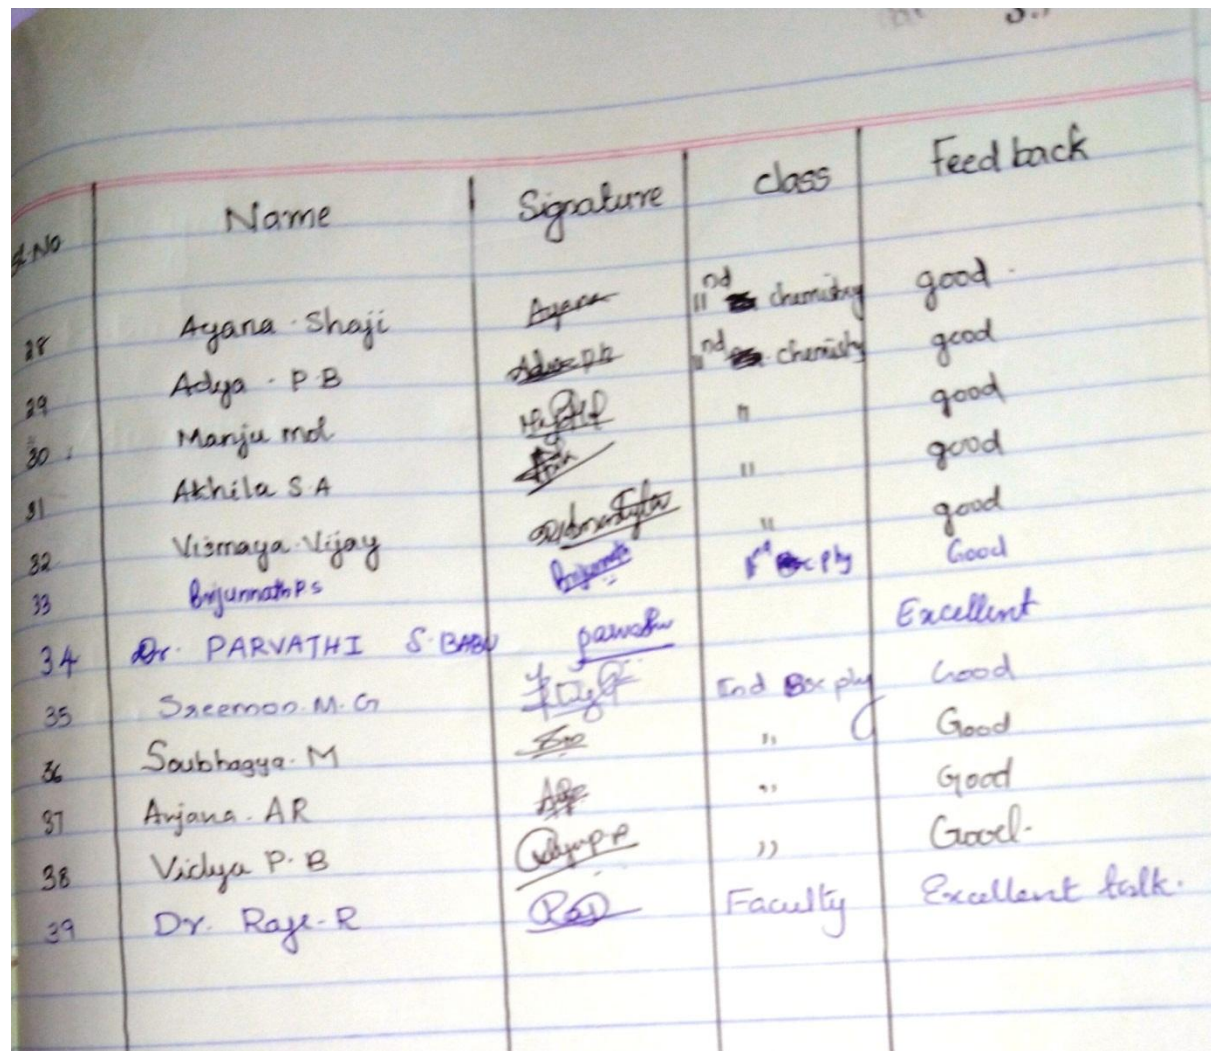 Sl.No Name Signature class Feedback
28 Ayana Shaji Ayana IInd chemistry good.
29 Adya P.B IInd chemistry good
30 Manju mol " good
31 Akhila S.A " good
32 Vismaya Vijay " good
33 Brijunnath P S Brijunnath Bsc phy Good
34 Dr. PARVATHI S. BABU Excellent
35 M.G IInd Bsc phy Good
36 Soubhagya. M " Good
37 Anjana. AR " Good
38 Vidya P. B " Good.
39 Dr. R Faculty Excellent talk.